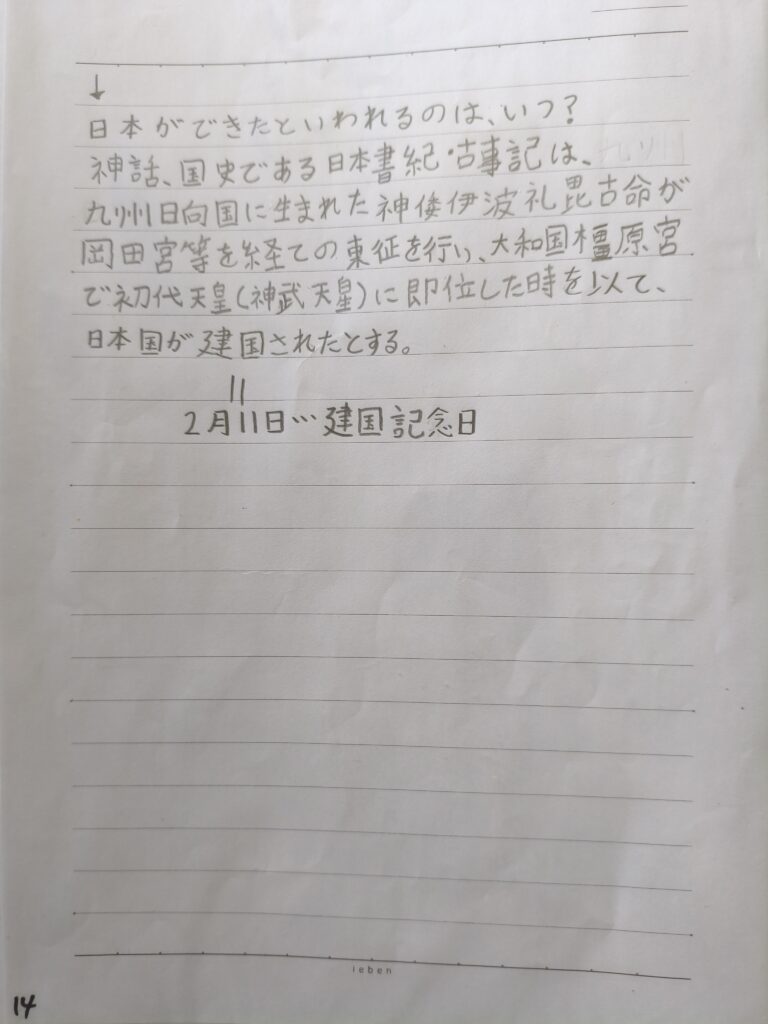 ↓
日本ができたといわれるのは、いつ?
神話、国史である日本書紀・古事記は、
九州日向国に生まれた神倭伊波礼毘古命が
岡田宮等を経ての東征を行い、大和国橿原宮
で初代天皇(神武天皇)に即位した時を以て、
日本国が建国されたとする。
||
2月11日…建国記念日
leben
14